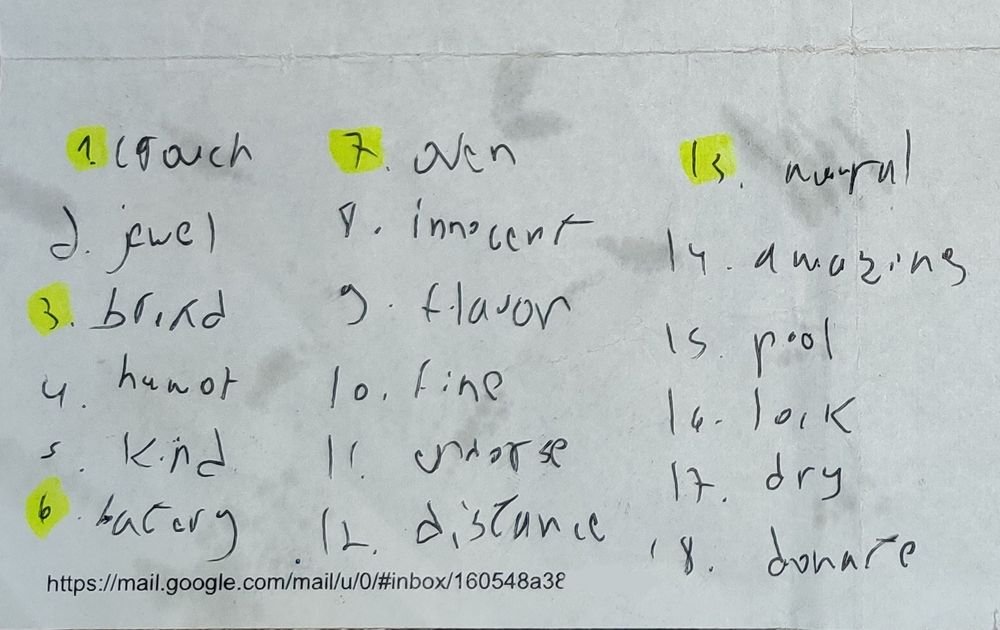 1. crouch
2. jewel
3. blind
4. humor
5. kind
6. batery
7. oven
8. innocent
9. flavor
10. fine
11. endorse
12. distance
13.
14. amazing
15. pool
16. lock
17. dry
18. donate
https://mail.google.com/mail/u/0/#inbox/160548a38